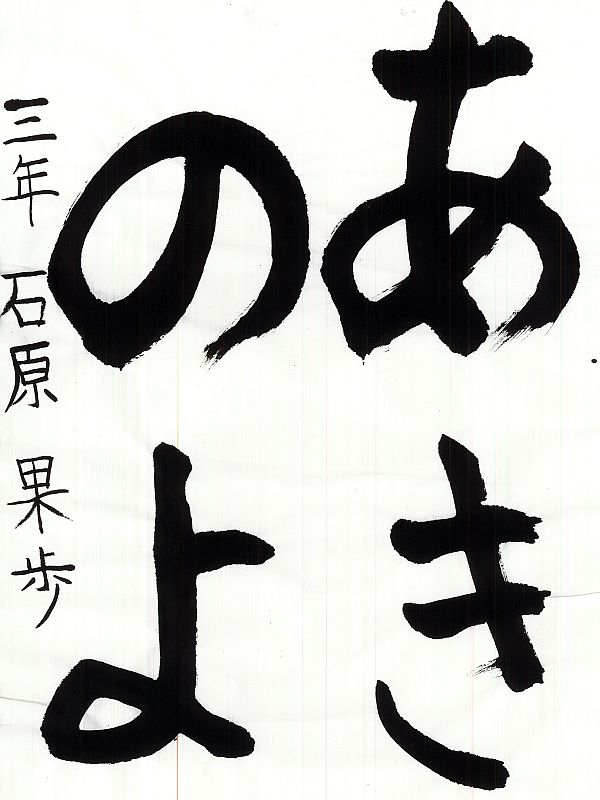 あき
のよ
三年 石原 果歩